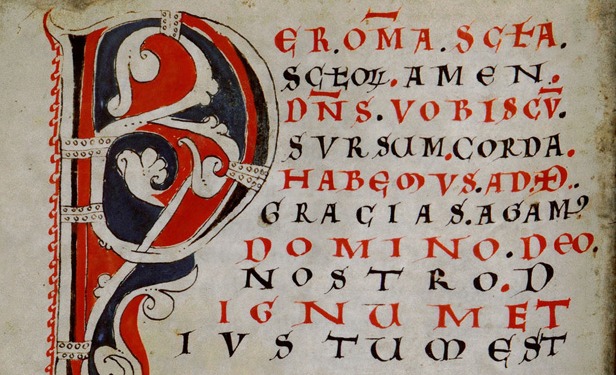 PER.OM̄A.SCŁA.
SCŁOꝜ.AMEN.
DN̄S.VOBISCV̄.
SVRSUM.CORDA.
HABEMVS.AD.
GRACIAS.AGAMꝰ
DOMINO.DEO.
NOSTRO.D
IGNUM ET
IVSTUM EST